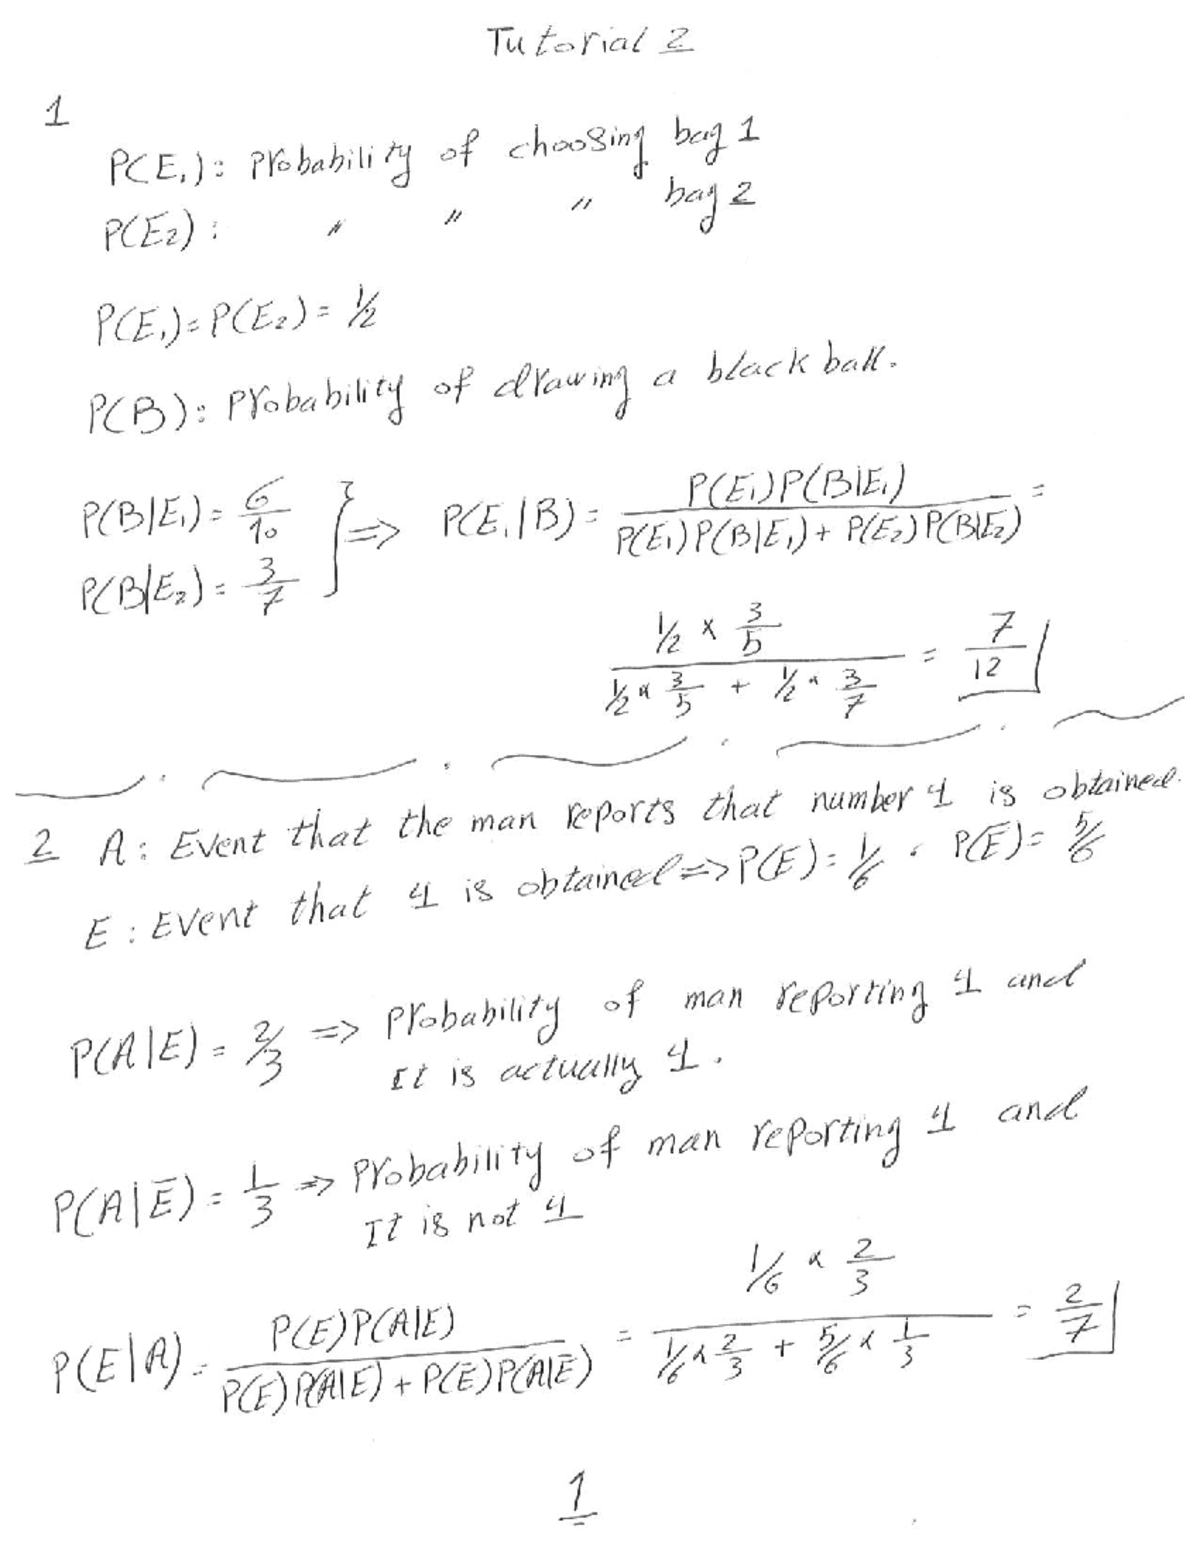 Tutorial 2
1
P(E₁): Probability of choosing bag 1
P(E₂): " " " bag 2
P(E₁)=P(E₂)= 1/2
P(B): Probability of drawing a black ball.
P(B|E₁)= 6/10 } ⇒ P(E₁|B)= P(E₁)P(B|E₁) / P(E₁)P(B|E₁)+P(E₂)P(B|E₂) =
P(B|E₂)= 3/7
1/2 × 3/5 / 1/2 × 3/5 + 1/2 × 3/7 = 7/12
2 A: Event that the man reports that number 4 is obtained.
E: Event that 4 is obtained ⇒ P(E)= 1/6 , P(Ē)= 5/6
P(A|E)= 2/3 ⇒ Probability of man reporting 4 and
It is actually 4.
P(A|Ē)= 1/3 ⇒ Probability of man reporting 4 and
It is not 4
P(E|A)= P(E)P(A|E) / P(E)P(A|E)+P(Ē)P(A|Ē) = 1/6 × 2/3 / 1/6 × 2/3 + 5/6 × 1/3 = 2/7
1